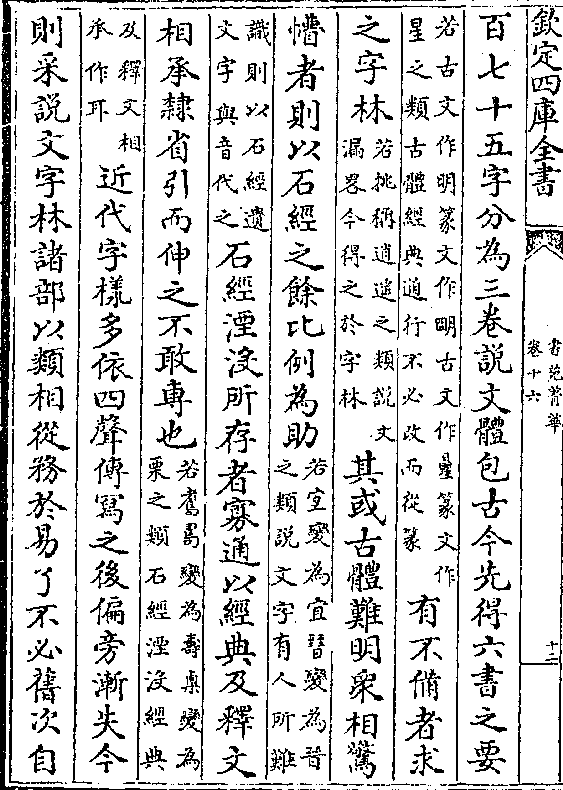 欽定四庫全書
書苑菁華
卷十六
十二
百七十五字分為三卷說文體包古今先得六書之要
若古文作明篆文作朙古文作曐篆文作
星之類古體經典通行不必改而從篆
有不備者求
之字林
若祧禰逍遥之類說文
漏畧今得之於字林
其或古體難明衆相驚
懵者則以石經之餘比例為助
若宐變為宜晉變為晋
之類說文字有人所難
識則以石經遺
文字與音代之
石經湮沒所存者寡通以經典及釋文
相承隸省引而伸之不敢專也
若變為壽㮚變為
栗之類石經湮沒經典
及釋文相
承作耳
近代字樣多依四聲傳寫之後偏旁漸失今
則采說文字林諸部以類相從務於易了不必舊次自